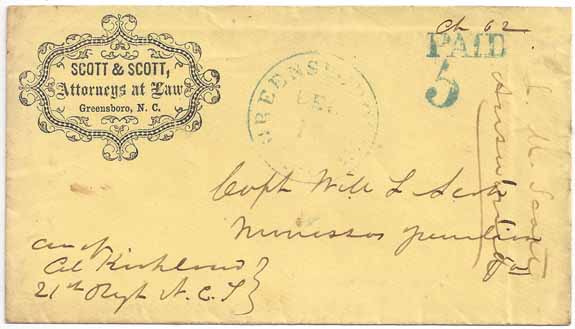 SCOTT & SCOTT,
Attorneys at Law
Greensboro, N. C.
GREENSBORO
DE
Ch 62
PAID
5
J. M. Scott
Answered
Capt Will L Scott
Manassas Junction
Va
Care of
Col Kirkland
21st Regt N. C. T